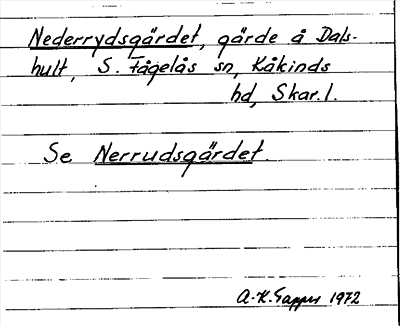 Nederrydsgärdet, gärde å Dals-
hult, S. Fågelås sn, Kåkinds
hd, Skar.l.
Se Nerrudsgärdet.
A.-K. 1972